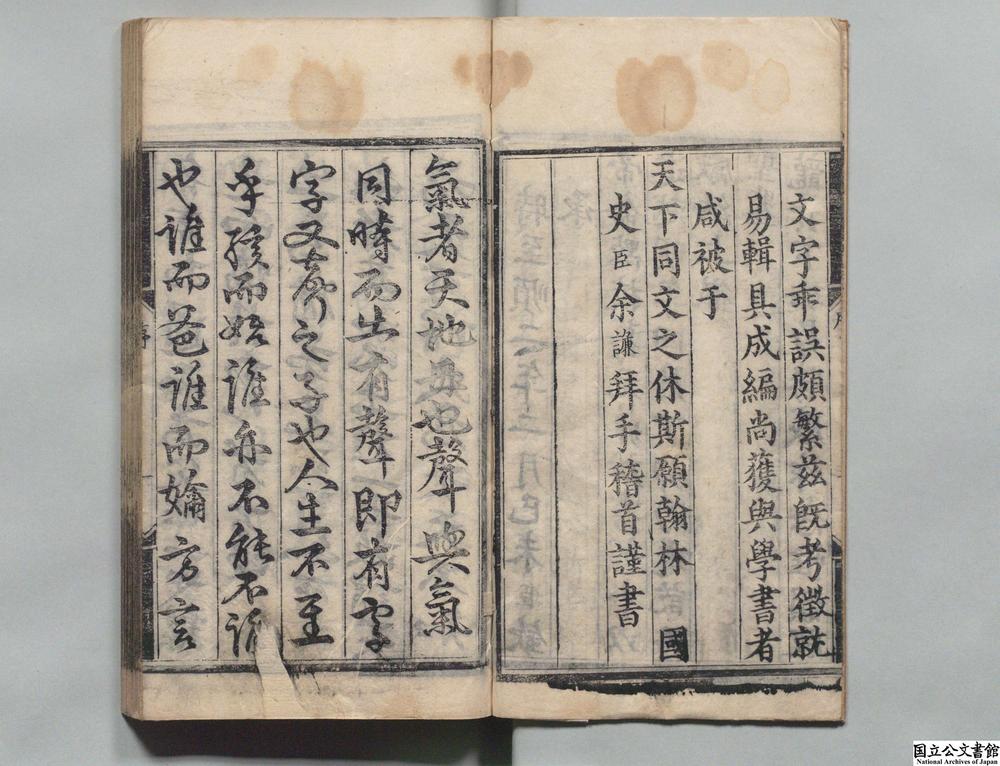 文字乖誤頗繁茲既考徵就
易輯具成編尚獲與學書者
咸被于
天下同文之休斯願翰林國
史臣余謙拜手稽首謹書
氣者天地母也聲與氣
同時而出有聲即有字
字又聲之子也人生不至
乎孩而始誰亦不能不謂
也誰而爸誰而嬭方言
序
国立公文書館
National Archives of Japan